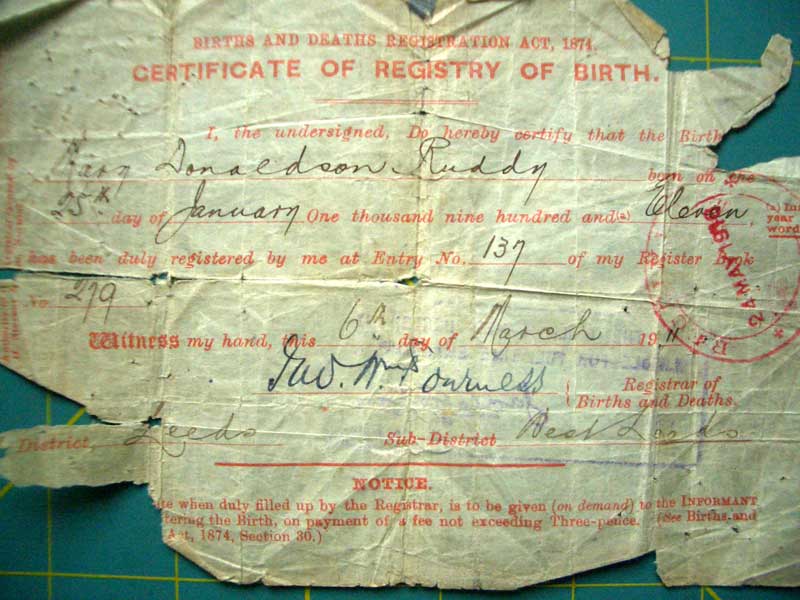 BIRTHS AND DEATHS REGISTRATION ACT, 1874.
CERTIFICATE OF REGISTRY OF BIRTH.
I, the undersigned, Do hereby certify that the Birth
Donaldson Ruddy born on the
25th day of January One thousand nine hundred and (a) Eleven, (a) In
year
word
has been duly registered by me at Entry No. 137 of my Register Book
No. 279
Witness my hand, this 6th day of March 1911
Registrar of
Births and Deaths.
District, Leeds Sub-District West Leeds
NOTICE.
te when duly filled up by the Registrar, is to be given (on demand) to the INFORMANT
tering the Birth, on payment of a fee not exceeding Three-pence. (See Births and
Act, 1874, Section 30.)